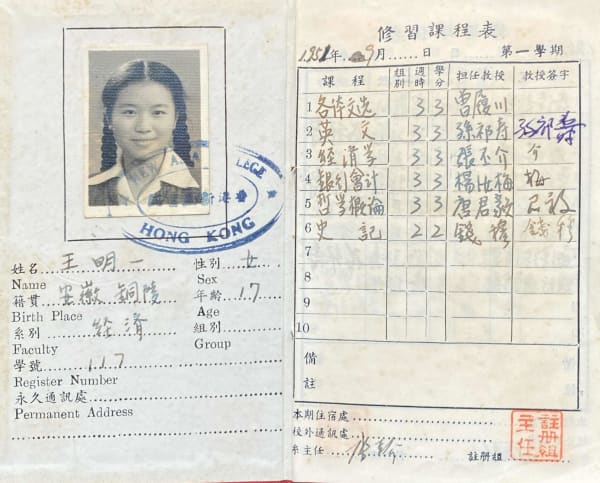 NEW ASIA COLLEGE
香港新亞書院
HONG KONG
姓名 王明一 性別 女
Name Sex
籍貫 安徽 銅陵 年齡 17
Birth Place Age
系別 經濟 組別
Faculty Group
學號 117
Register Number
永久通訊處
Permanent Address
修習課程表
1951年 9月 日 第一學期
課程 組別 週時 學分 担任教授 教授簽字
1 各体文选 3 3 曾履川
2 英文 3 3 孫祁壽 孫祁壽
3 經濟學 3 3 張丕介 介
4 銀行會計 3 3 楊汝梅 梅
5 哲学概論 3 3 唐君毅 君毅
6 史記 2 2 錢穆 錢穆
7
8
9
10
備註
本期住宿處
校外通訊處
系主任 張丕介 註册組
註册組主任